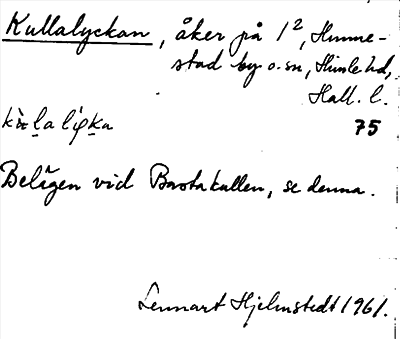 Kullalyckan, åker på 1², Humme-
stad by o. sn, Himle hd,
Hall. l.
75
Belägen vid Bastakullen, se denna.
Lennart Hjelmstedt 1961.